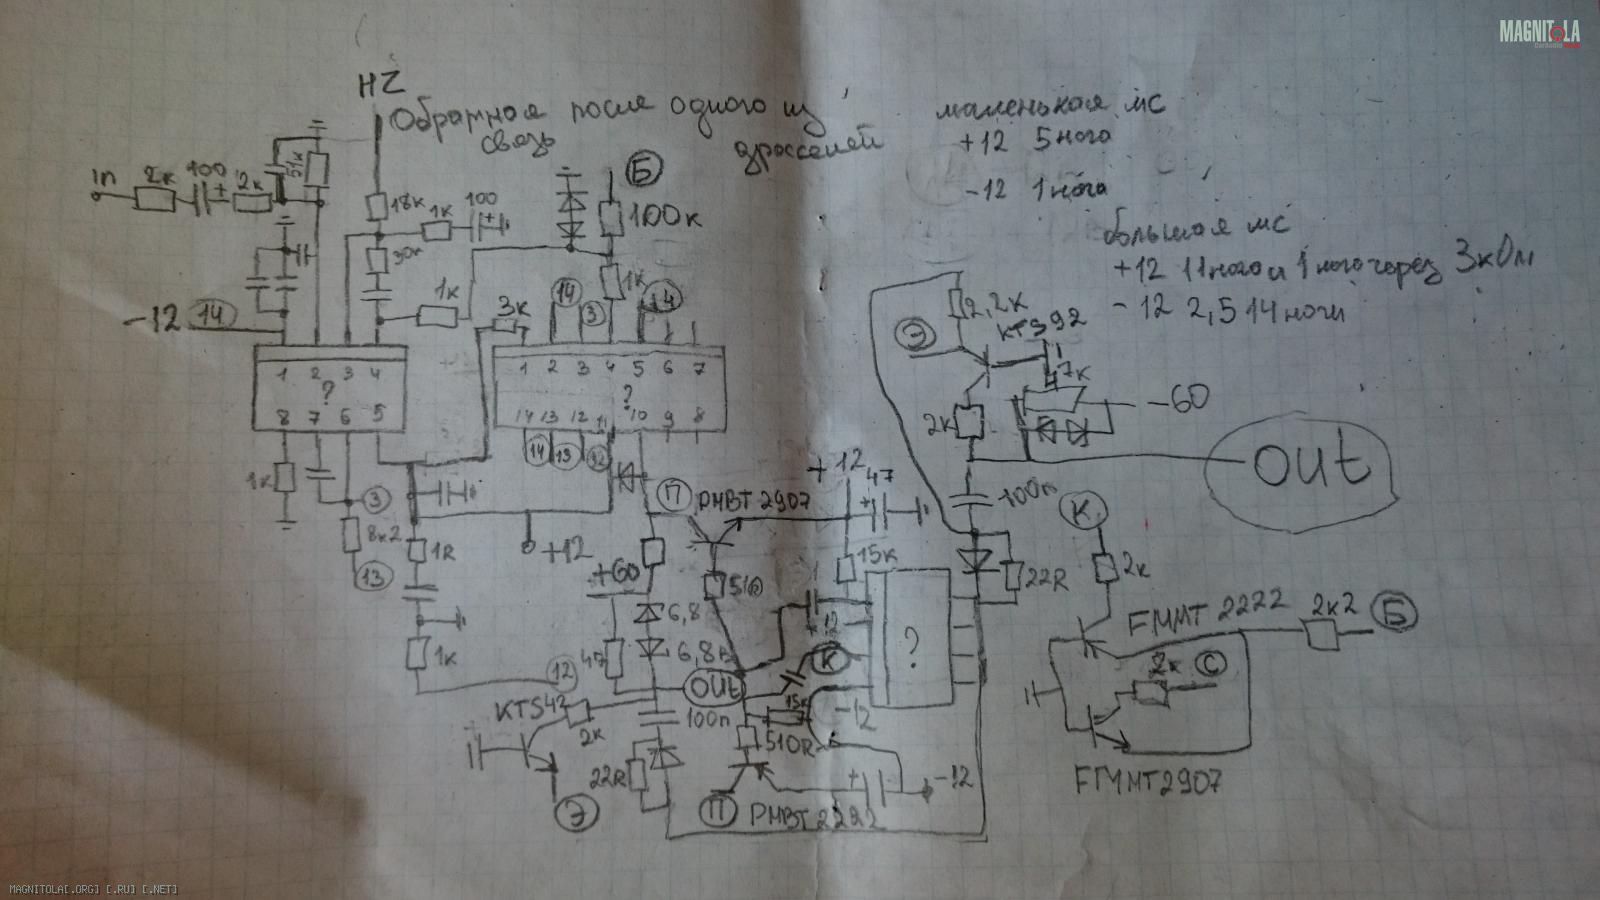 MAGNITOLA
HZ
Обратная после одного из
связь
дросселей
маленькая мс
+12 5 нога
-12 1 нога
большая мс
+12 11 нога и 1 нога через 3кОм
-12 2,5 14 ноги
in
2к
100
+
2к
51к
18к
1к
100
+
30к
1к
Б
100к
1к
3к
14
3
14
-12
14
1 2 3 4
?
8 7 6 5
1 2 3 4 5 6 7
?
14 13 12 11 10 9 8
14
13
12
1к
3
8к2
13
1R
1к
12
+12
+60
6,8
6,8в
47
П
PMBT 2907
510
+12
47
+
15к
+12
?
К
out
15к
-12
510R
100n
KTS42
2к
22R
Э
П
PMBT 2222
+
-12
Э
2,2к
KTS92
47к
-60
2к
out
100n
22R
К
2к
FMMT 2222
2к2
Б
2к
С
FMMT2907
MAGNITOLA[.ORG] [.RU] [.NET]